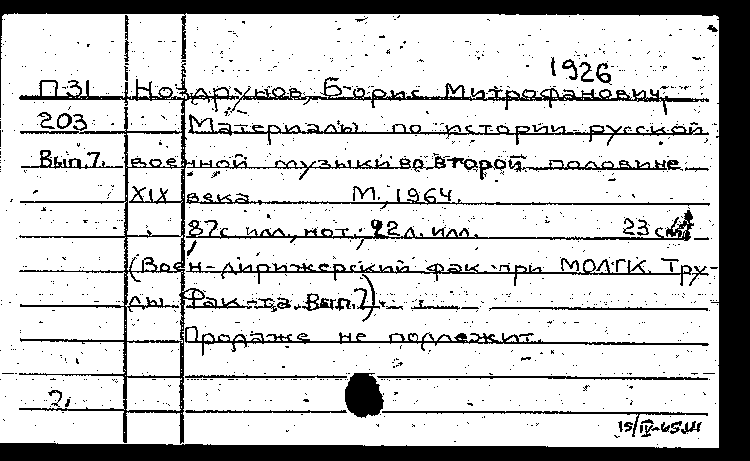 1926
П 31 Ноздрунов, Борис Митрофанович.
203 Материалы по истории русской
Вып.7. военной музыки во второй половине
XIX века. М., 1964.
87с илл., нот.; 22л. илл. 23 см
(Воен-дирижерский фак. при МОЛГК. Тру-
ды Фак-та. Вып.7).
Продаже не подлежит.
2,
15/IV-65